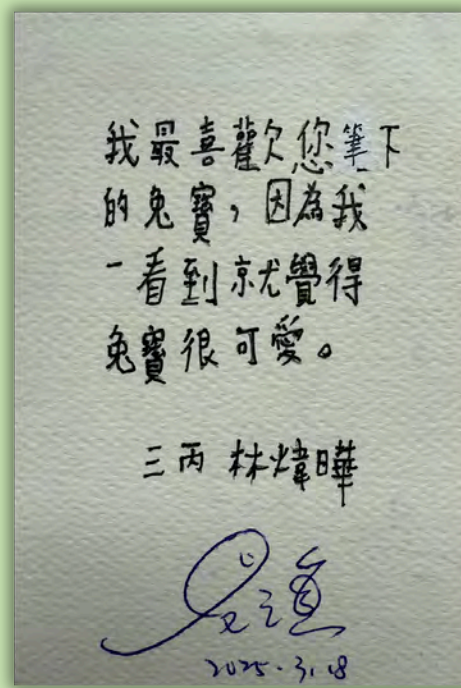 我最喜歡您筆下
的兔寶，因為我
一看到就覺得
兔寶很可愛。
三丙 林煒曄
2025.3.18